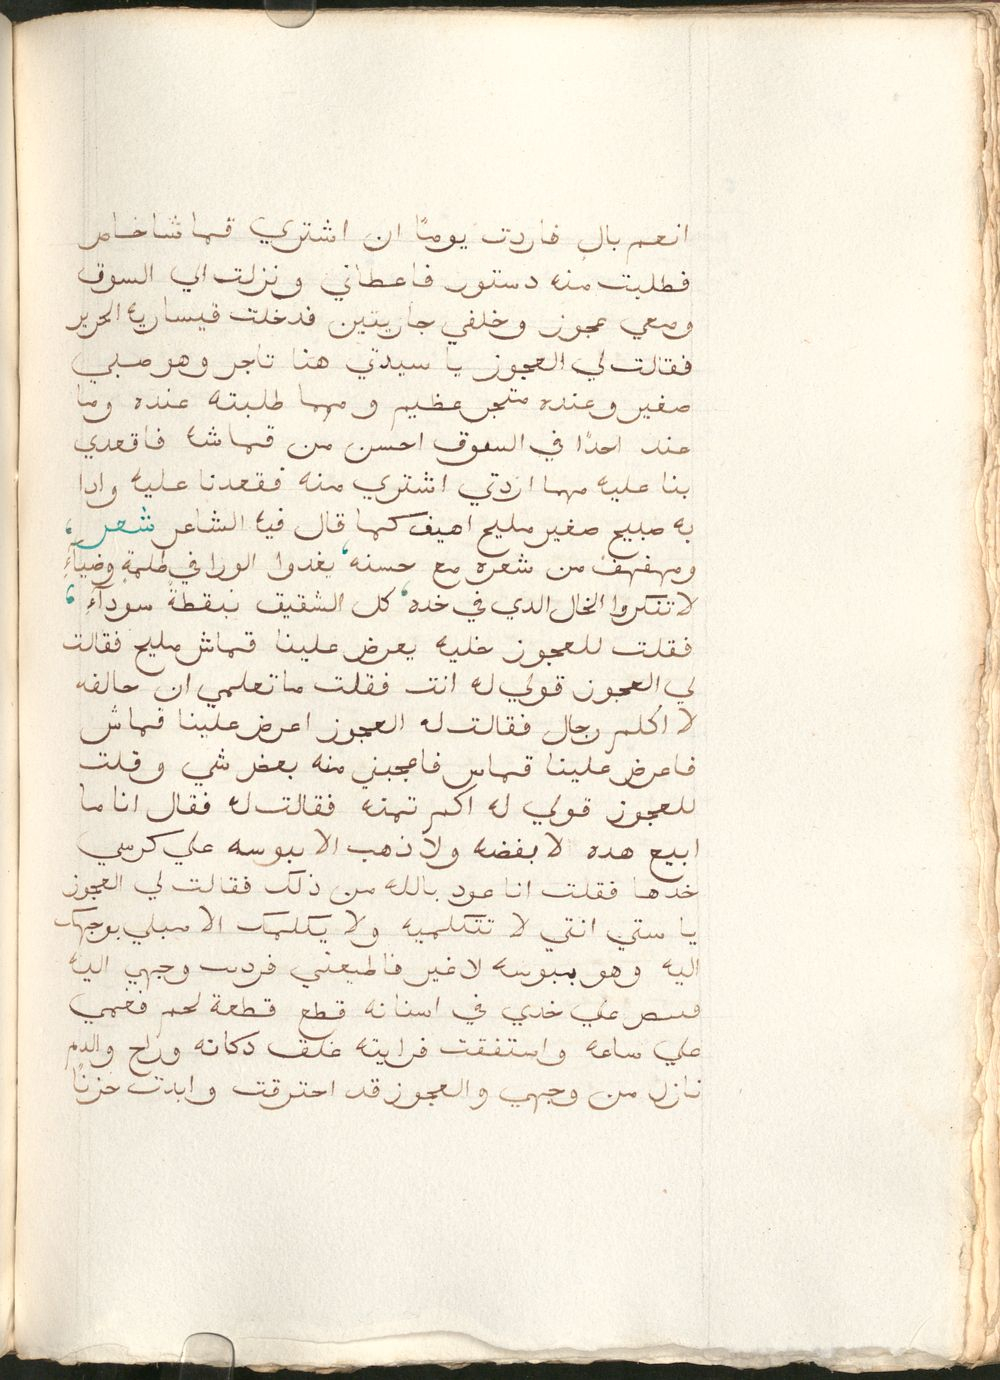 انعم بال فاردت يومًا ان اشتري قماشا خاص
فطلبت منه دستور فاعطاني ونزلت الي السوق
ومعي عجوز وخلفي جاريتين فدخلت قيسارية الحرير
فقالت لي العجوز يا سيدتي هنا تاجر وهو صبي
صغير وعنده متجر عظيم ومهما طلبته عنده وما
عند احدًا في السوق احسن من قماشه فاقعدي
بنا عليه مهما اردتي اشتري منه فقعدنا عليه وادا
به صبيح صغير مليح اهيف كما قال فيه الشاعر شعر
ومهفهف من شعره مع حسنه يغدوا الورا في ظلمةٍ وضيآءِ
لا تنكروا الخال الدي في خده كل الشقيق بنقطةً سودآءِ
فقلت للعجوز خليه يعرض علينا قماش مليح فقالت
لي العجوز قولي له انت فقلت ما تعلمي ان حالفه
لا اكلم رجال فقالت له العجوز اعرض علينا قماش
فاعرض علينا قماس فاعجبني منه بعض شي وقلت
للعجوز قولي له اكم تمنه فقالت له فقال انا ما
ابيع هده لا بفضه ولا ذهب الا ببوسه علي كرسي
خدها فقلت انا عود بالله من ذلك فقالت لي العجوز
يا ستي انتي لا تتكلميه ولا يكلمك الا ميلي بوجهك
اليه وهو يبوسه لا غير فاطمعتني فردت وجهي اليه
علي خدي في اسنانه قطع قطعة لحم فغمي
علي ساعه واستفقت فرايته غلق دكانه وراح والدم
نازل من وجهي والعجوز قد احترقت وابدت حزنًا